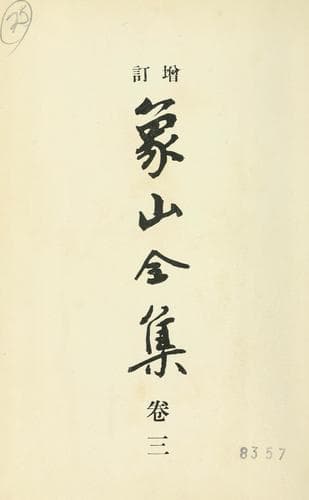 25
增訂
象山全集
卷三
8357